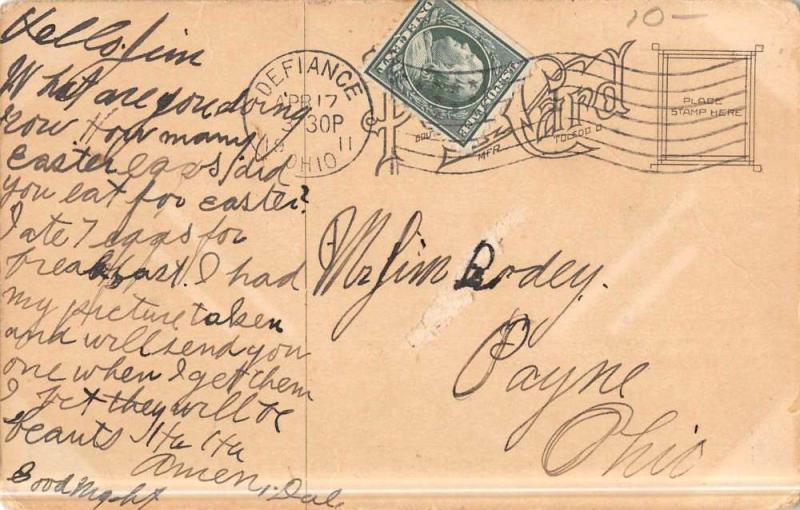 Hello. Jim
What are you doing
now. How many
Easter eggs did
you eat for easter?
I ate 7 eggs for
breakfast. I had
my picture taken
and will send you
one when I get them
I bet they will be
beauts Ha Ha
Amen. Dale
Good Night
DEFIANCE
APR 17
30P
19 11
OHIO
ONE CENT
10-
Card
MFR
TOLEDO O
PLACE
STAMP HERE
Mr Jim Rodey.
Payne
Ohio